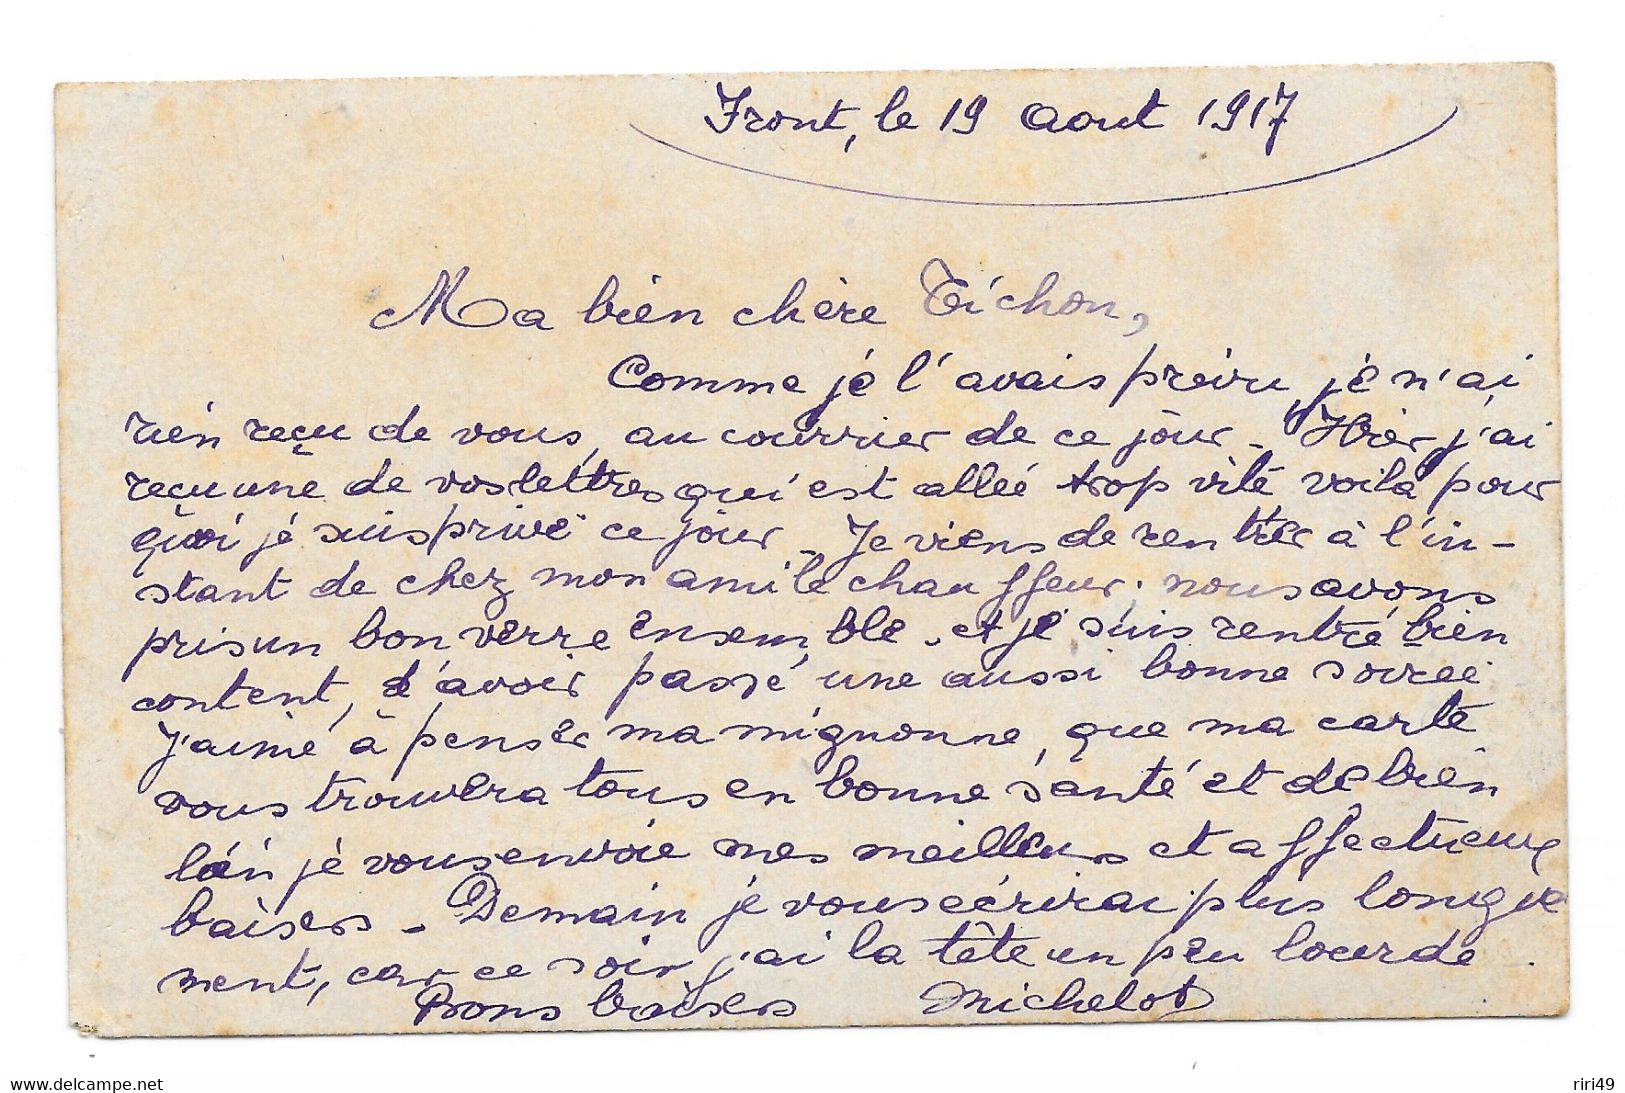 Front, le 19 Aout 1917
Ma bien chère Tichon,
Comme je l'avais prévu, je n'ai
rien reçu de vous, au courrier de ce jour - Hier j'ai
reçu une de vos lettres qui est allée trop vite voilà pour
quoi je suis privé ce jour - Je viens de rentrer à l'in-
stant de chez mon ami le chauffeur. nous avons
pris un bon verre ensemble. et je suis rentré bien
content, d'avoir passé une aussi bonne soirée
J'aime à penser ma mignonne, que ma carte
vous trouvera tous en bonne santé et de bien
loin je vous envoie mes meilleurs et affectueux
baisers - Demain je vous écrirai plus longue
ment, car ce soir j'ai la tête un peu lourde.
Bons baisers Michelot
delcampe.net
riri49